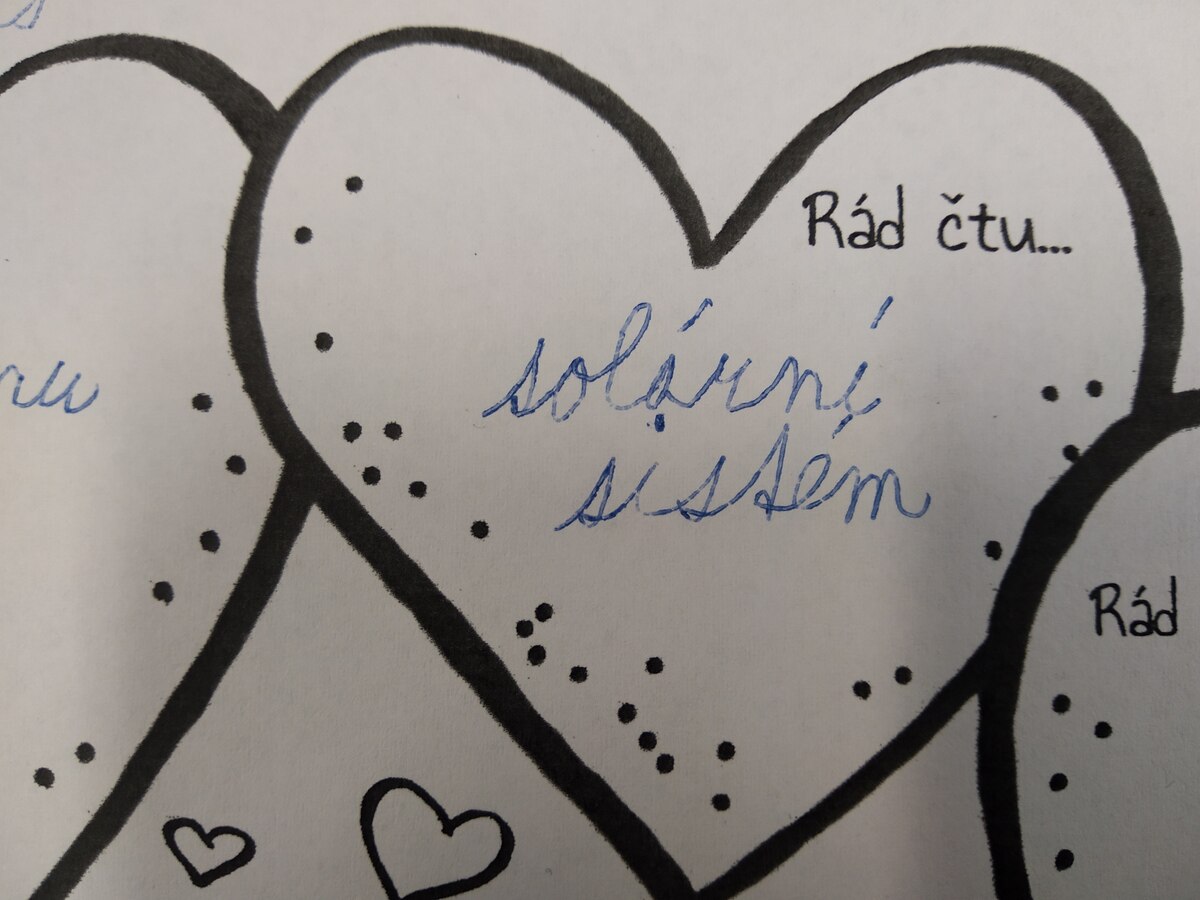 Rád čtu...
solární
sistém
Rád